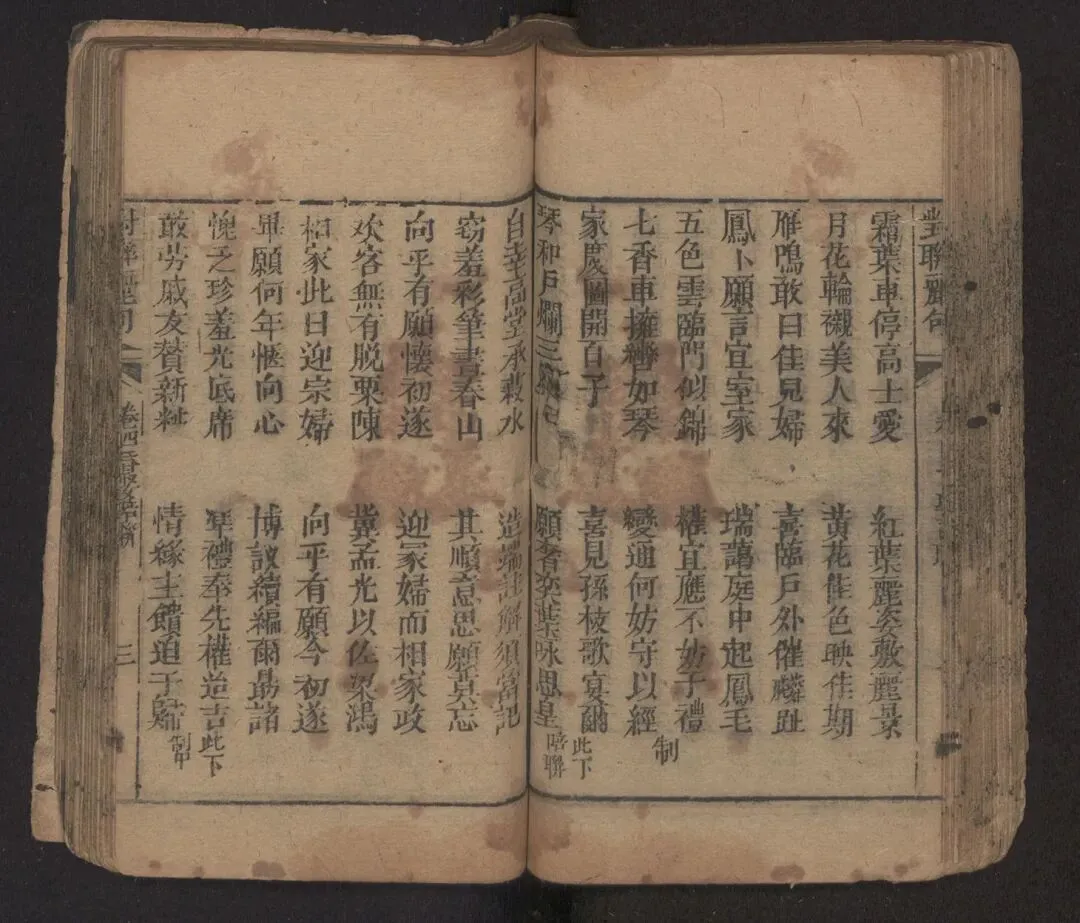 對聯麗句
霜葉車停高士愛
月花輪襯美人來
雁鳴敢曰佳見婦
鳳卜願言宜室家
五色雲臨門似錦
七香車擁轡如琴
家慶圖開百子
琴和戶爛三
紅葉麗姿敷麗景
黃花佳色映佳期
喜臨戶外催麟趾
瑞藹庭中起鳳毛
權宜應不妨于禮
變通何妨守以經 制
喜見孫枝歌宴爾 此下
願看奕葉咏思皇 暗聯
高堂承菽水
窈羞彩筆畫春山
向平有願懷初遂
欢客無有脫粟陳
相家此日迎宗婦
畢願何年愜向心
愧乏珍羞光底席
敢勞戚友贊新粧
造端註解須當記
其順意思願莫忘
迎家婦而相家政
冀孟光以佐梁鴻
向平有願今初遂
博議續編爾勗諸
禮奉先權造吉 此下
情緣主饋迫于歸 制中
卷四
三